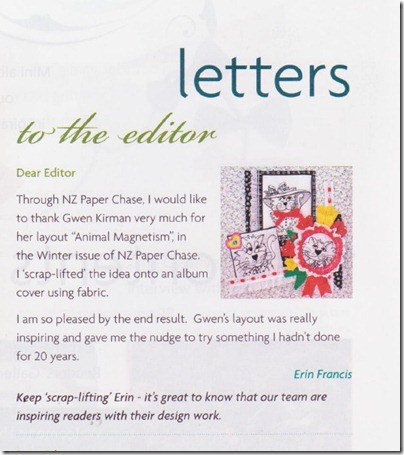 letters
to the editor
Dear Editor
Through NZ Paper Chase, I would like
to thank Gwen Kirman very much for
her layout "Animal Magnetism", in
the Winter issue of NZ Paper Chase.
I 'scrap-lifted' the idea onto an album
cover using fabric.
I am so pleased by the end result. Gwen's layout was really
inspiring and gave me the nudge to try something I hadn't done
for 20 years.
Erin Francis
Keep 'scrap-lifting' Erin - it's great to know that our team are
inspiring readers with their design work.